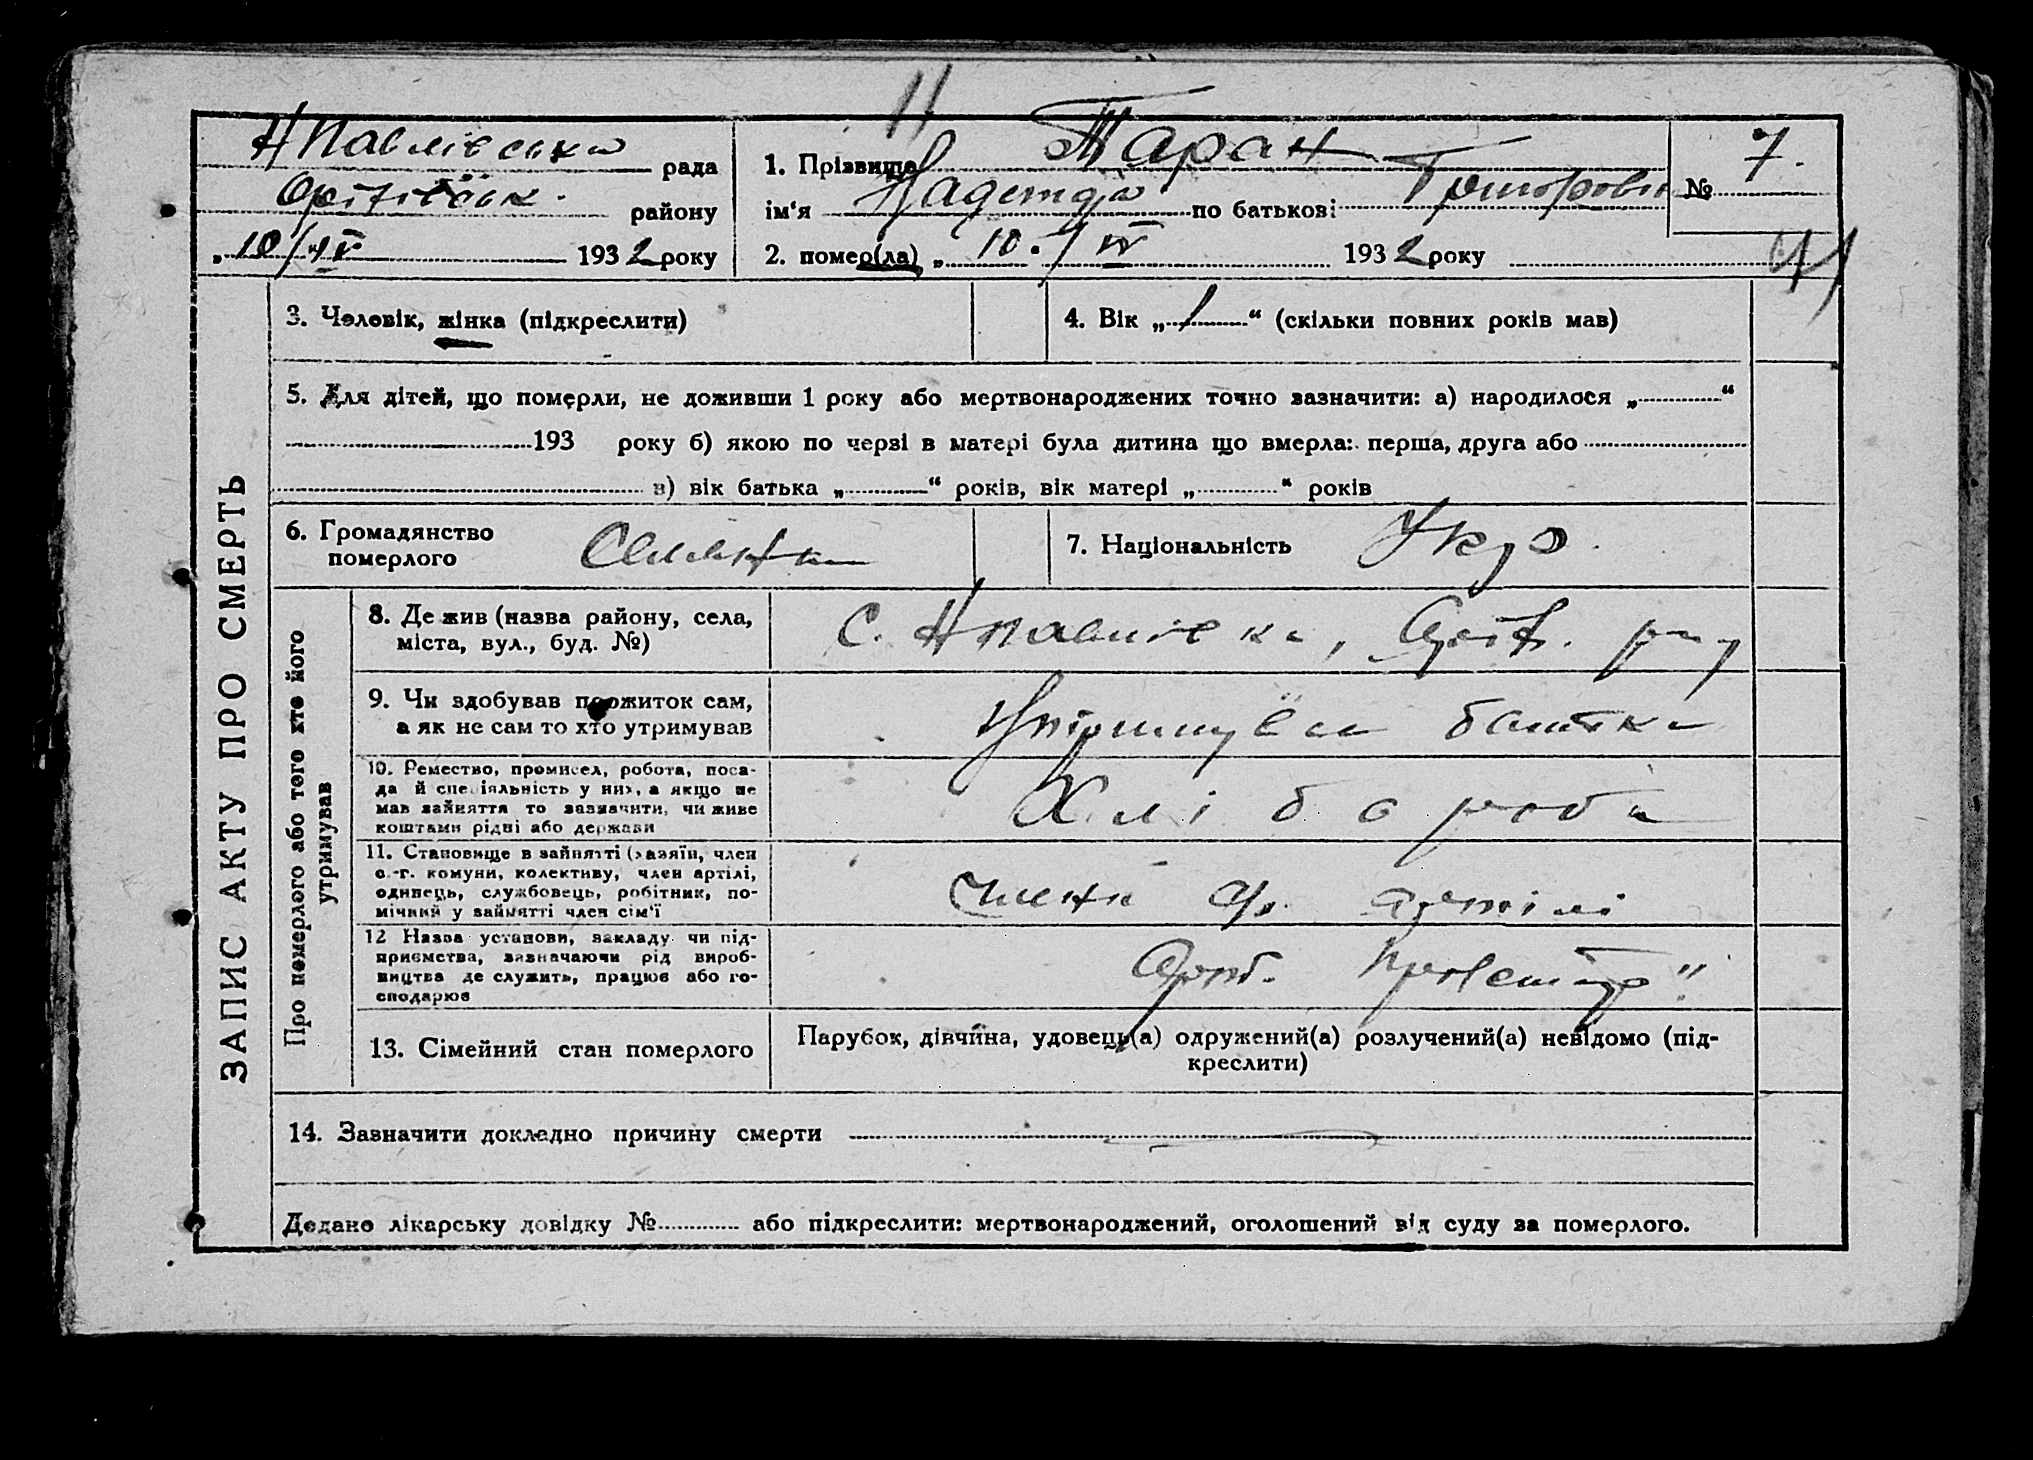 Н Павлівська рада
району
„10/IV 1932 року
ЗАПИС АКТУ ПРО СМЕРТЬ
1. Прізвище Таран
ім'я Надежда по батькові Григоровн
№ 7.
2. помер(ла) „10./IV 1932 року
3. Чоловік, жінка (підкреслити)
4. Вік „1“ (скільки повних років мав)
5. Для дітей, що померли, не доживши 1 року або мертвонароджених точно зазначити: а) народилося „ “
193 року б) якою по черзі в матері була дитина що вмерла: перша, друга або
в) вік батька „ “ років, вік матері „ “ років
6. Громадянство
померлого
7. Національність Укр.
Про померлого або того хто його
утримував
8. Де жив (назва району, села,
міста, вул., буд. №)
С. Н Павлівка,
9. Чи здобував прожиток сам,
а як не сам то хто утримував
батька
10. Ремество, промисел, робота, поса-
да й спеціяльність у них, а якщо не
мав зайняття то зазначити, чи живе
коштами рідні або держави
Хлібороб
11. Становище в зайнятті (хазяїн, член
с.-г. комуни, колективу, член артілі,
одинець, службовець, робітник, по-
мічний у зайнятті член сім'ї
член артілі
12 Назва установи, закладу чи під-
приємства, зазначаючи рід вироб-
ництва де служить, працює або го-
сподарює
13. Сімейний стан померлого
Парубок, дівчина, удовець(а) одружений(а) розлучений(а) невідомо (під-
креслити)
14. Зазначити докладно причину смерти
Додано лікарську довідку № або підкреслити: мертвонароджений, оголошений від суду за померлого.